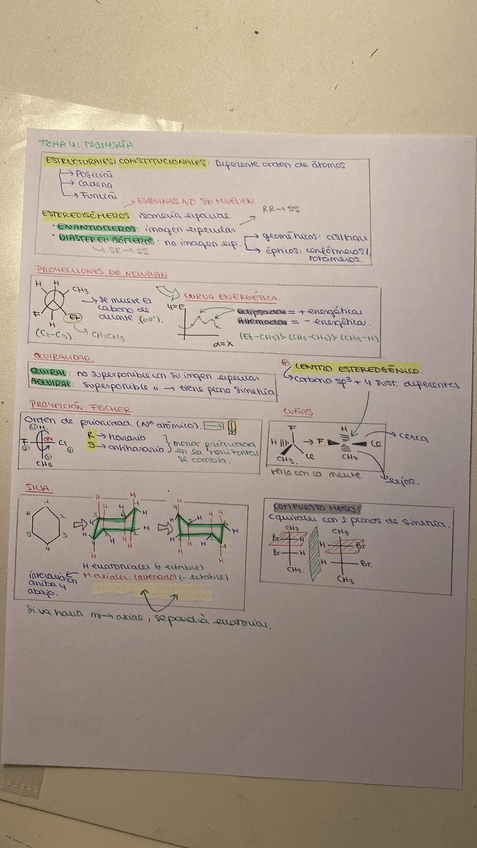 TEMA 4: ISOMERÍA
ESTRUCTURALES/CONSTITUCIONALES: Diferente orden de átomos
→ Posición
→ Cadena
→ Función
→ ESQUINAS NO SE MUEVEN
ESTEREOISÓMEROS: isomería espacial
RR → SS
• ENANTIÓMEROS: imagen especular
• DIASTEREOISÓMEROS: no imagen esp.
→ geométricos: cis/trans
→ ópticos: confórmeros/
rotámeros.
→ SR → SS
PROYECCIONES DE NEWMAN
H H CH3
F H Et
(C2-C3).
CH2CH3
→ se mueve el
carbono de
delante (60º).
CURVA ENERGÉTICA
y=E
α=x
Eclipsadas = + energéticas
Alternadas = - energética.
(Et-CH3) > (CH3-CH3) > (CH3-H)
QUIRALIDAD
QUIRAL: no superponible con su imagen especular
AQUIRAL: superponible " → tiene plano simetría
* CENTRO ESTEREOGÉNICO
→ carbono sp3 + 4 sust. diferentes
PROYECCIÓN FISCHER
Orden de prioridad. (Nº atómico).
H
F Cl
CH3
R → horario
S → antihorario
menor prioridad
en la horizontal
se cambia.
CUÑAS
F
H Cl
CH3
→ F H Cl
CH3
→ cerca
→ lejos.
SILLA
1
2
3
4
5
6
H ecuatoriales (+ estable)
H axiales (alternado) (- estable)
intercalan
arriba y
abajo.
Si va hacia → axial, se pondrá ecuatorial.
COMPUESTO MESO:
aquirales con 2 planos de simetría.
CH3 CH3
Br H H Br
Br H H Br
CH3 CH3